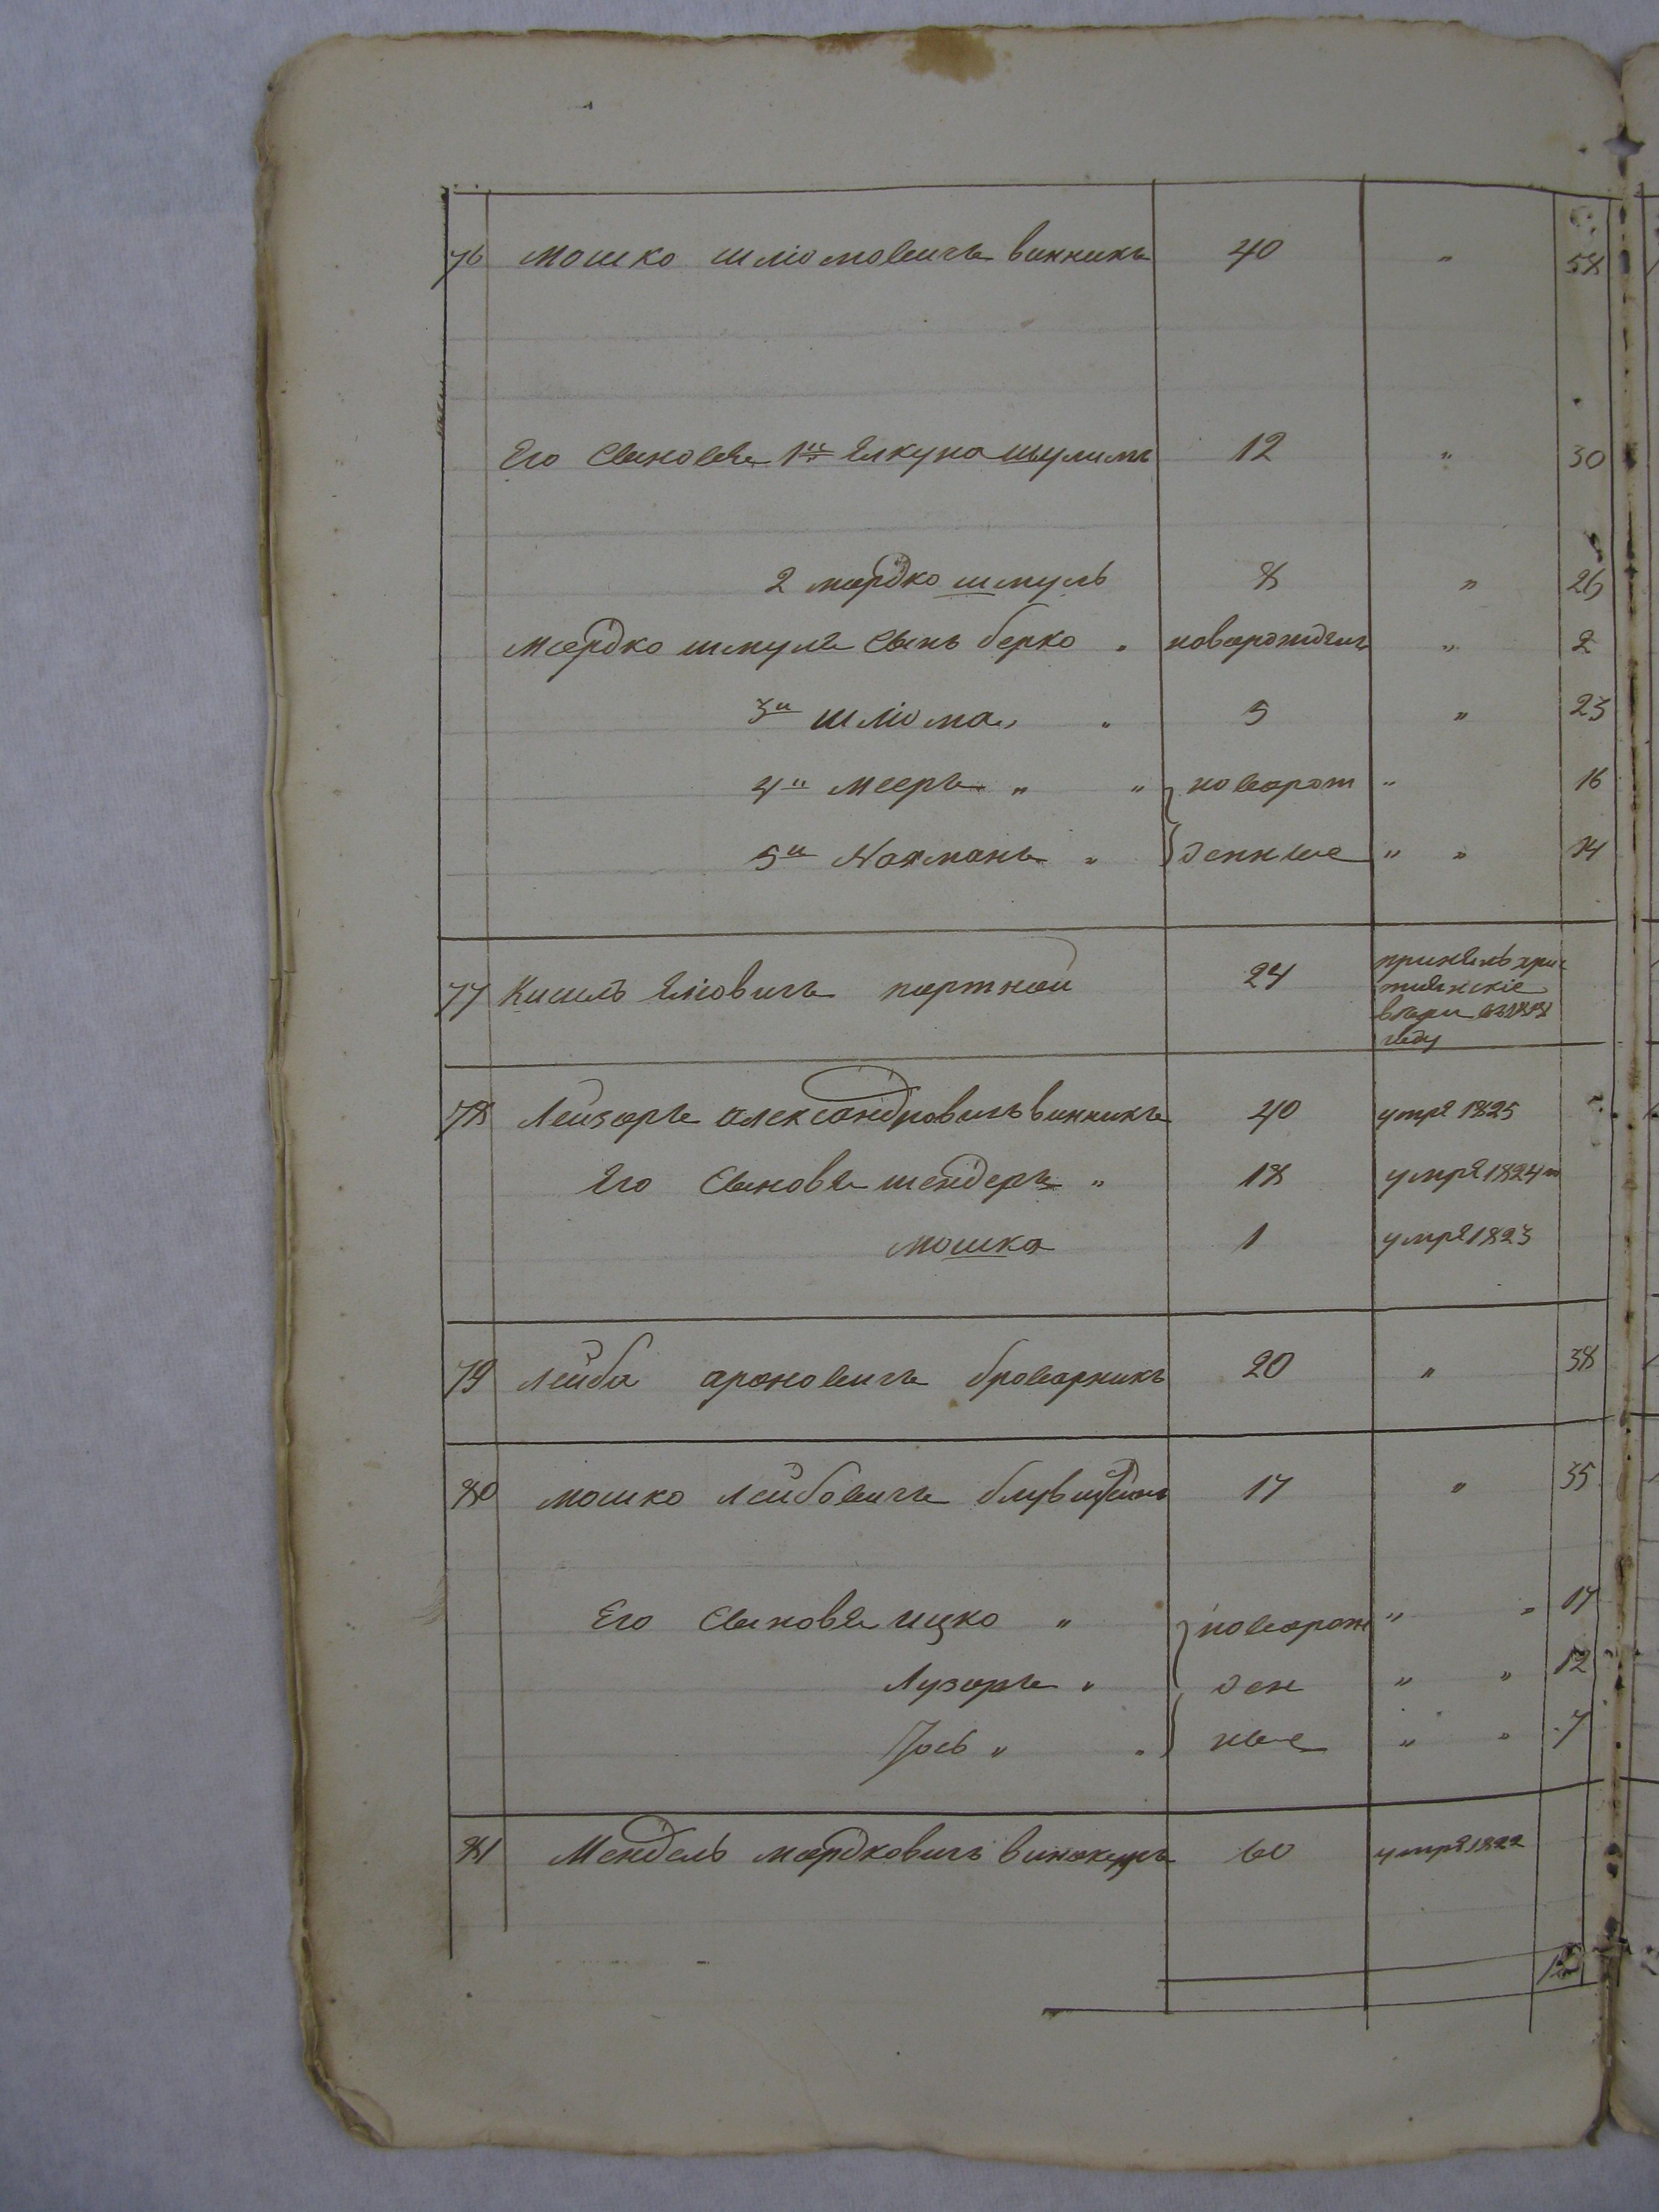 76 Мошко Шліомовичъ Винникъ 40 " 58
Его Сыновья 1й Янкуна Шулимъ 12 " 30
2 Мордко Шмуль 8 " 26
Мордко Шмуля Сынъ Берко " новорожден " 2
3й Шліома " " 5 " 23
4й Мееръ " " новорож " 16
5й Нахманъ " денные " " 14
77 Кисиль Яновичъ портной 24 принялъ хри
стіянскіе
вѣри в
году
78 Лейзоръ Александровичъ Винникъ 40 умре 1825
Его Сыновья Шендеръ " 18 умре 1824
Мошка 1 умре 1823
79 Лейба Ароновичъ Броварникъ 20 " 38
80 Мошко Лейбовичъ 17 " 35
Его Сыновья Ицко " новорож " " 17
Лузоръ " ден " " 12
Іось " " ные " " 7
81 Мендель Мордковичъ Винокуръ 60 умре 1822